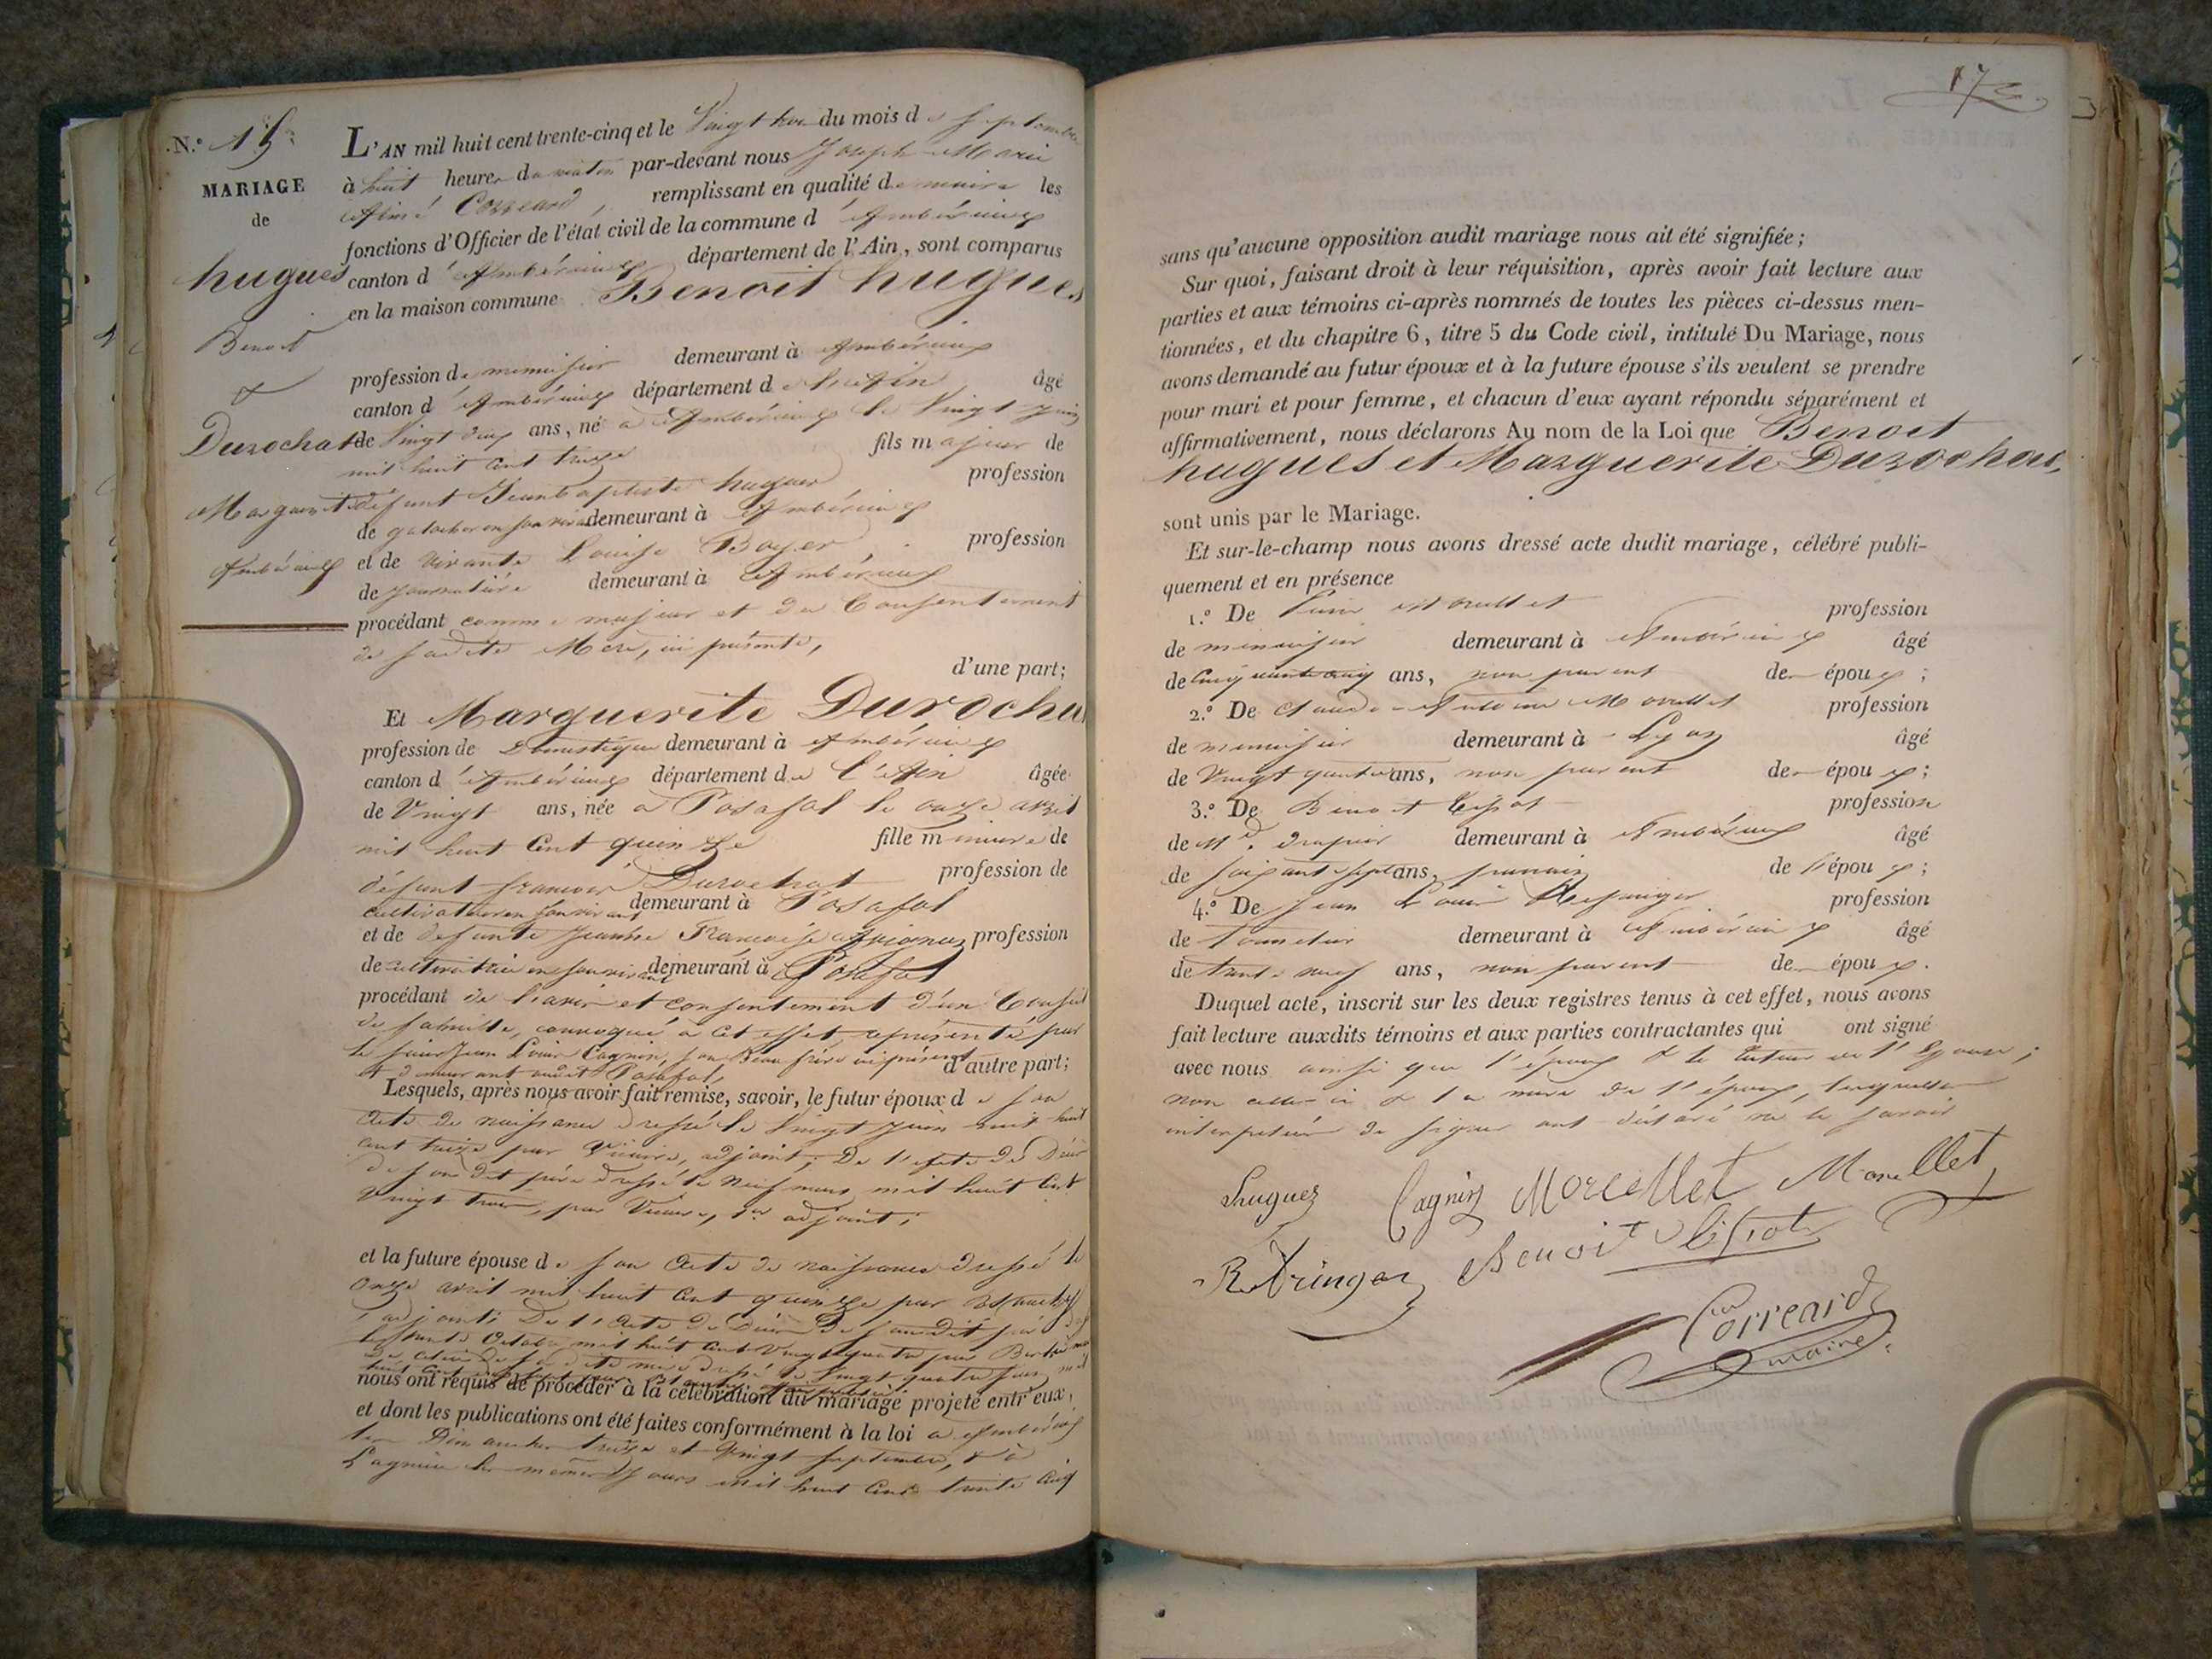 N.º 15
MARIAGE
de
hugues
Benoit
&
Durochat
Marguerite
Ambérieux
L'AN mil huit cent trente-cinq et le Vingt trois du mois de septembre
à huit heures du matin par-devant nous Joseph Marie
Aimé Correard, remplissant en qualité de maire les
fonctions d'Officier de l'état civil de la commune d'Ambérieux
canton d'Ambérieux département de l'Ain, sont comparus
en la maison commune Benoit hugues
profession de menuisier demeurant à Ambérieux
canton d'Ambérieux département de l'Ain âgé
de Vingt deux ans, né à Ambérieux le Vingt juin
mil huit cent treize fils majeur de
défunt Jean baptiste hugues profession
de galocher en son vivant demeurant à Ambérieux
et de vivante Louise Boyer, profession
de journalière demeurant à Ambérieux
procédant comme majeur et du Consentement
de sadite Mère, ici présente,
d'une part;
Et Marguerite Durochat
profession de Domestique demeurant à Ambérieux
canton d'Ambérieux département de l'Ain âgée
de Vingt ans, née à Posafol le onze avril
mil huit Cent quinze fille mineure de
défunt françois Durochat profession de
cultivateur en son vivant demeurant à Posafol
et de défunte Jeanne Françoise profession
de cultivatrice en son vivant demeurant à Posafol
procédant de l'avis et consentement d'un Conseil
de famille, convoqué à cet effet, représenté par
le sieur Jean Louis Cagnin, son Beau frère ici présent
et demeurant audit Posafol, d'autre part;
Lesquels, après nous avoir fait remise, savoir, le futur époux de son
acte de naissance dressé le Vingt juin mil huit
cent treize par Vicaire, adjoint; De l'acte de Décès
de son dit père dressé le neuf mars mil huit Cent
Vingt trois, par Vicaire, 1er adjoint;
et la future épouse de son acte de naissance dressé le
onze avril mil huit Cent quinze par
adjoint; De l'acte de Décès de son dit père
octobre mil huit Cent Vingt quatre par
de celui de sa dite mère dressé le Vingt quatre juin mil
nous ont requis de procéder à la célébration du mariage projeté entr'eux,
et dont les publications ont été faites conformément à la loi à Ambérieux
les Dimanches treize et Vingt septembre, & à
Lagnieu les mêmes jours mil huit Cent trente cinq
17
sans qu'aucune opposition audit mariage nous ait été signifiée;
Sur quoi, faisant droit à leur réquisition, après avoir fait lecture aux
parties et aux témoins ci-après nommés de toutes les pièces ci-dessus men-
tionnées, et du chapitre 6, titre 5 du Code civil, intitulé Du Mariage, nous
avons demandé au futur époux et à la future épouse s'ils veulent se prendre
pour mari et pour femme, et chacun d'eux ayant répondu séparément et
affirmativement, nous déclarons Au nom de la Loi que Benoit
hugues et Marguerite Durochat,
sont unis par le Mariage.
Et sur-le-champ nous avons dressé acte dudit mariage, célébré publi-
quement et en présence
1.º De Morellet profession
de menuisier demeurant à Ambérieux âgé
de Cinquante cinq ans, non parent de époux;
2.º De Claude Antoine Morellet profession
de menuisier demeurant à Lyon âgé
de Vingt quatre ans, non parent de époux;
3.º De Benoit Tissot profession
de Md. drapier demeurant à Ambérieux âgé
de soixante sept ans, de l'époux;
4.º De Jean Louis profession
de Tonnelier demeurant à Ambérieux âgé
de trente neuf ans, non parent de époux.
Duquel acte, inscrit sur les deux registres tenus à cet effet, nous avons
fait lecture auxdits témoins et aux parties contractantes qui ont signé
avec nous ainsi que l'époux & le tuteur de l'Epouse;
non celle ci & la mère de l'époux, lesquelles
interpelées de signer ont déclaré ne le savoir
hugues Cagnin Morellet Morellet
Benoit Tissot
Correard
maire